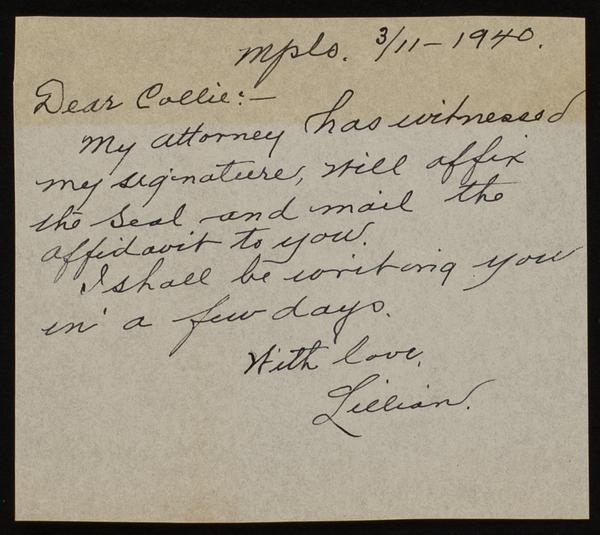 Mpls. 3/11-1940.
Dear Collie:-
My attorney has witnessed
my signature, will affix
the seal and mail the
affidavit to you.
I shall be writing you
in a few days.
With love,
Lillian.